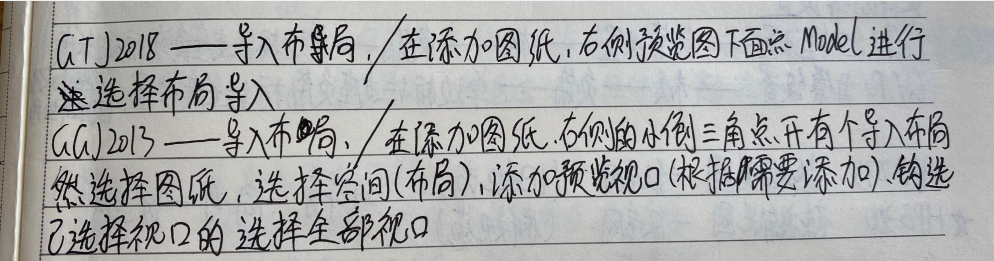 GTJ2018——导入布局，/在添加图纸，右侧预览图下面点Model进行
选择布局导入
GGJ2013——导入布局，/在添加图纸，右侧的小倒三角点开有个导入布局
然选择图纸，选择空间(布局)，添加预览视口(根据需要添加)、钩选
已选择视口的 选择全部视口